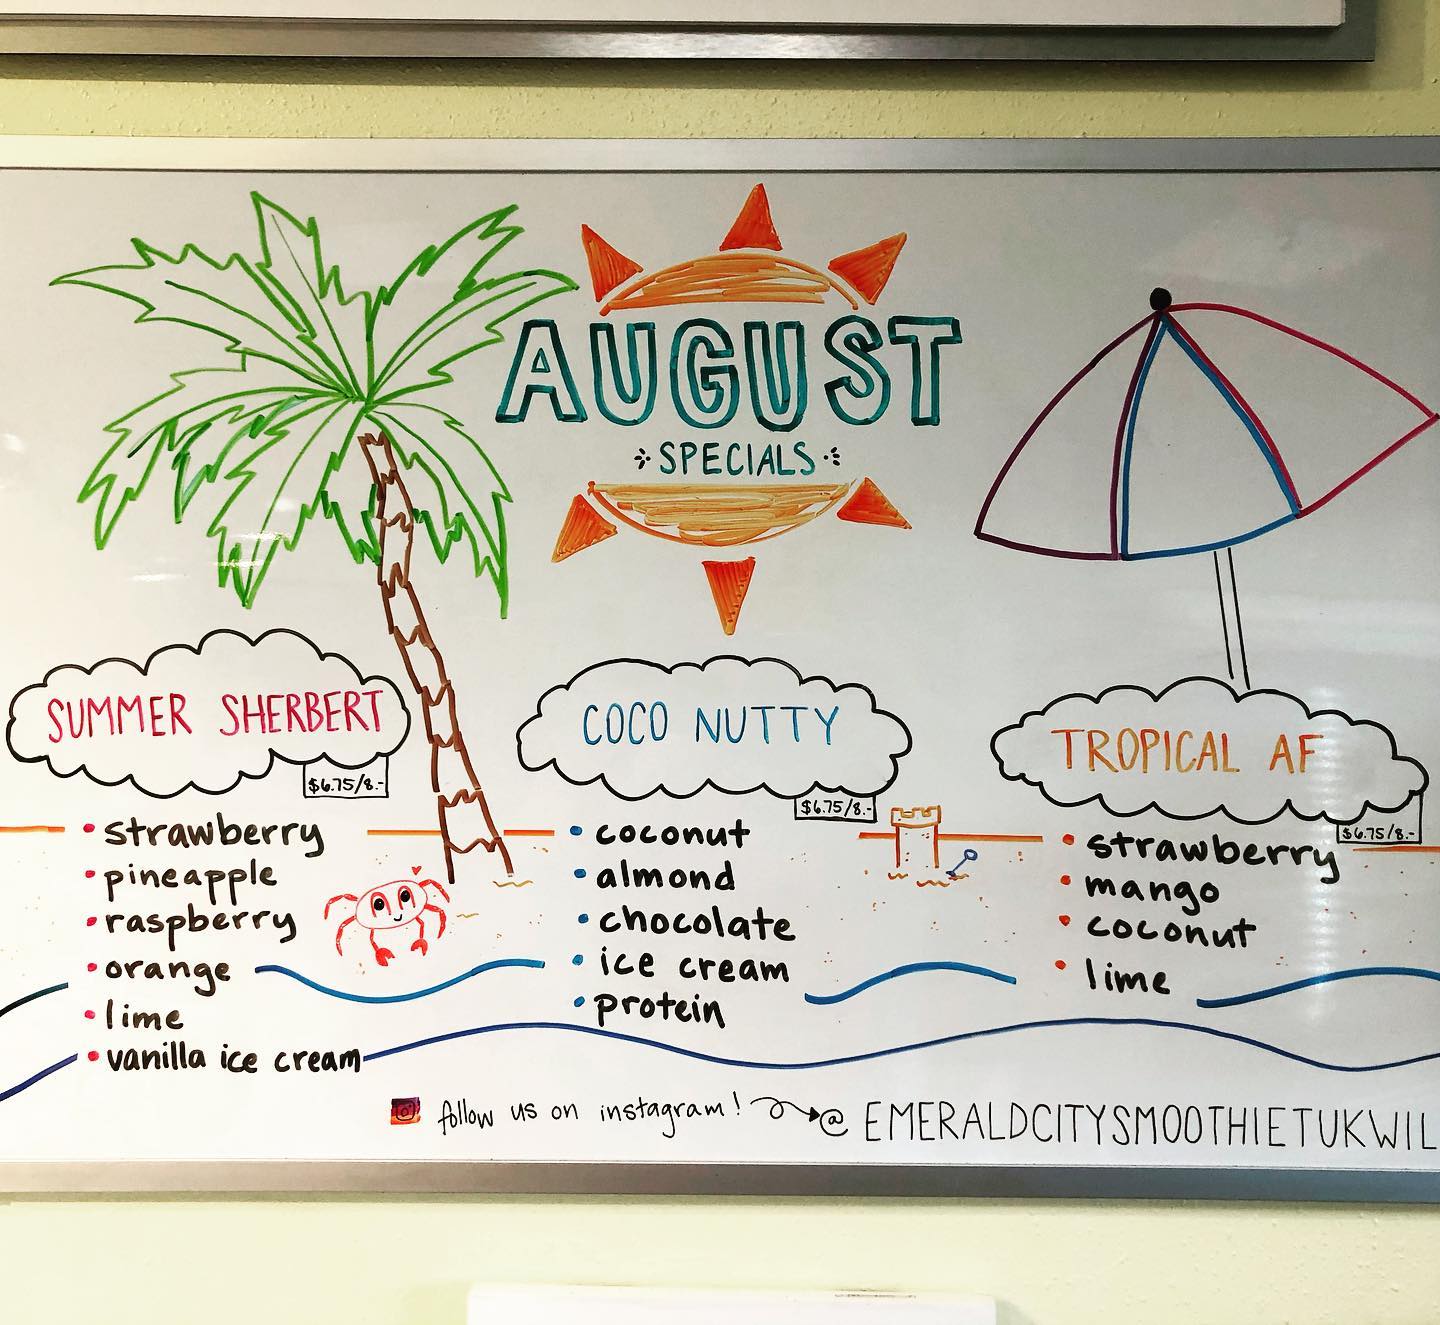 AUGUST
SPECIALS
SUMMER SHERBERT
$6.75/8.-
• strawberry
• pineapple
• raspberry
• orange
• lime
• vanilla ice cream
COCO NUTTY
$6.75/8.-
• coconut
• almond
• chocolate
• ice cream
• protein
TROPICAL AF
$6.75/8.-
• strawberry
• mango
• coconut
• lime
follow us on instagram! @EMERALDCITYSMOOTHIETUKWIL